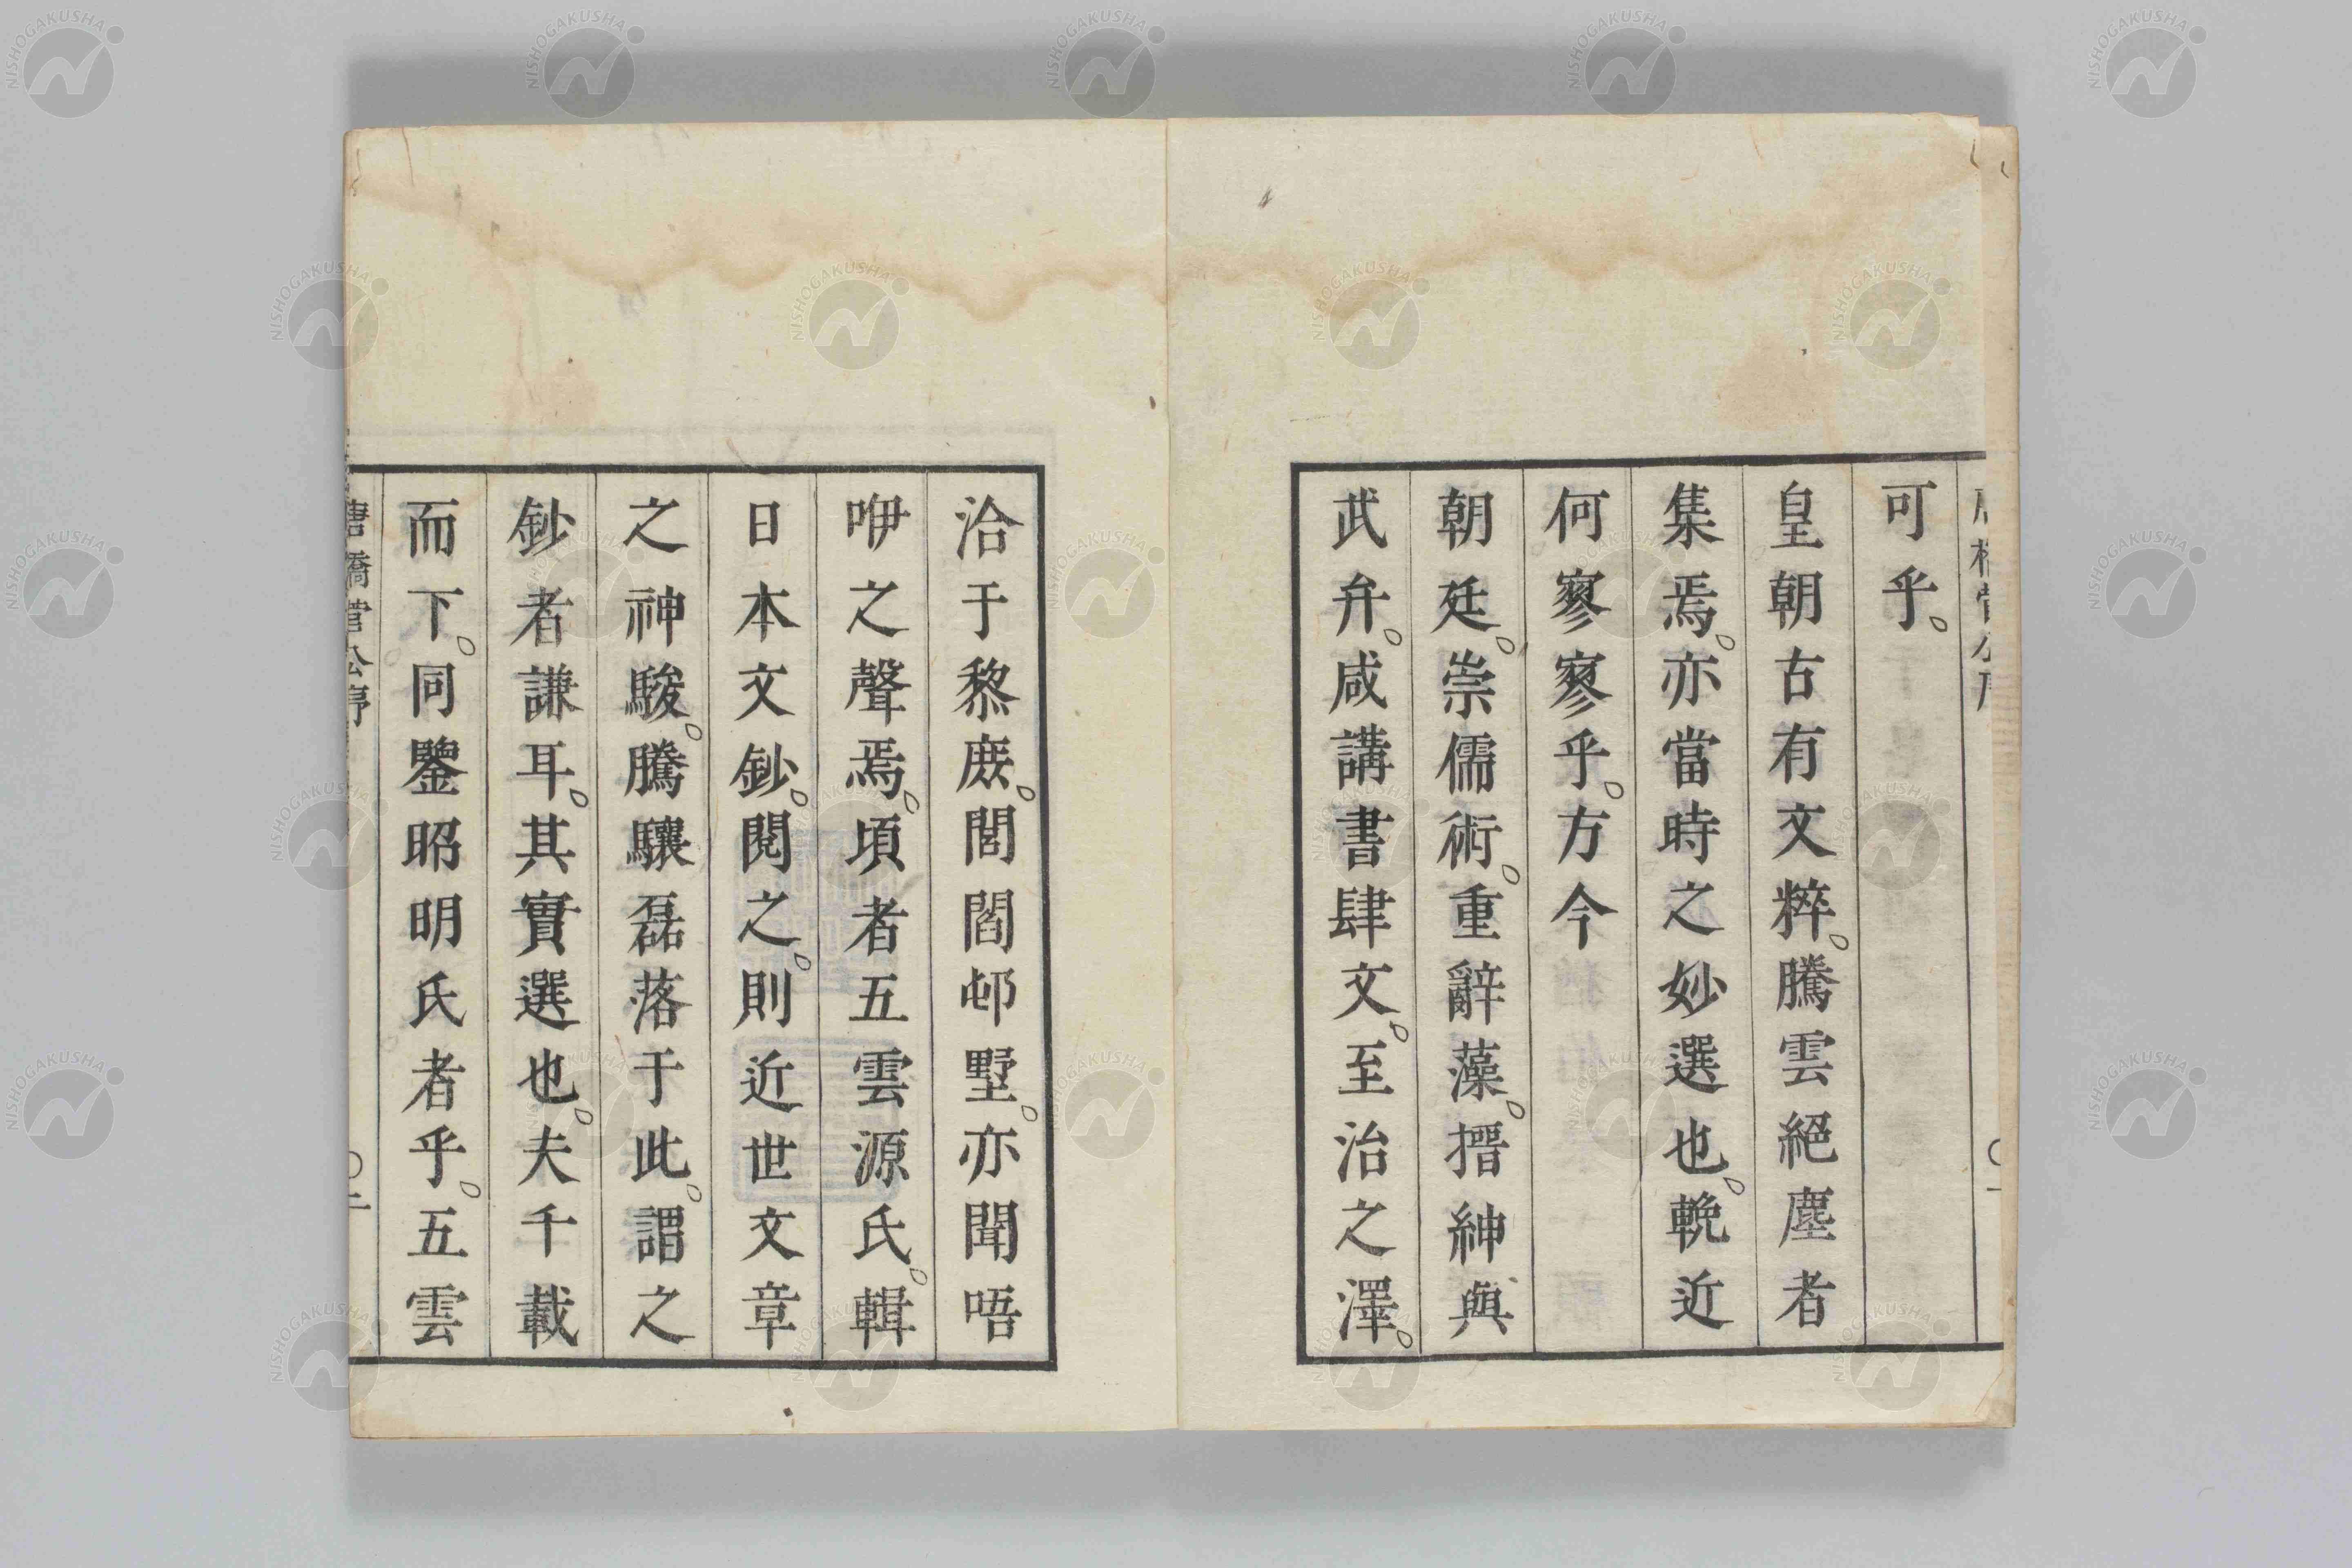 可乎。
皇朝古有文粹。騰雲絕塵者
集焉。亦當時之妙選也。輓近
何寥寥乎。方今
朝廷。崇儒術。重辭藻。搢紳與
武弁。咸講書肆文。至治之澤。
洽于黎庶。閭閻邨墅。亦聞唔
咿之聲焉。頃者五雲源氏。輯
日本文鈔。閱之。則近世文章
之神駿。騰驤磊落于此。謂之
鈔者謙耳。其實選也。夫千載
而下。同鑒昭明氏者乎。五雲
唐橋菅公序
〇二
NISHOGAKUSHA